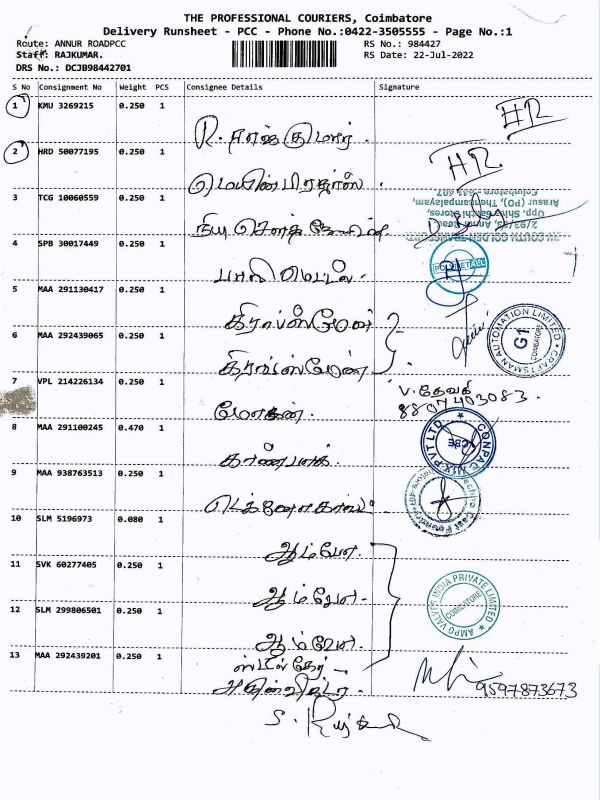 THE PROFESSIONAL COURIERS, Coimbatore
Delivery Runsheet - PCC - Phone No.:0422-3505555 - Page No.:1
Route: ANNUR ROADPCC
RS No.: 984427
Staff: RAJKUMAR.
RS Date: 22-Jul-2022
DRS No.: DCJB98442701
S No Consignment No Weight PCS Consignee Details Signature
1 KMU 3269215 0.250 1
HR
R. ராஜ்குமார்.
2 HRD 50077195 0.250 1
HR.
3 TCG 10060559 0.250 1
2/93/43, Annur Road,
Opp. Shivasakthi Stores,
Arasur (PO), Thennampalayam,
Coimbatore - 641 407
4 SPB 30017449 0.250 1
POLYMETALL
பாலி மெட்டல்.
5 MAA 291130417 0.250 1
கிராப்ஸ்மேன்
CRAFTSMAN AUTOMATION LIMITED
G1
COIMBATORE
6 MAA 292439065 0.250 1
கிராப்ஸ்மேன்
7 VPL 214226134 0.250 1
V. தேவகி
8807403083.
மோகன்.
8 MAA 291100245 0.470 1
CONPAC MIX PVT LTD
CBE
கான்பாக்.
9 MAA 938763513 0.250 1
10 SLM 5196973 0.080 1
ஆம்போ
11 SVK 60277405 0.250 1
ஆம்போ
AMPO VALVES INDIA PRIVATE LIMITED
COIMBATORE
12 SLM 299806501 0.250 1
ஆம்போ
13 MAA 292439201 0.250 1
9597873673